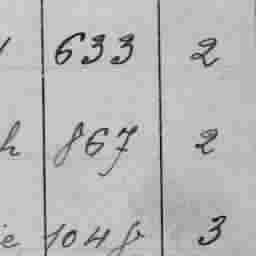 633 2
h 867 2
ie 1048 3